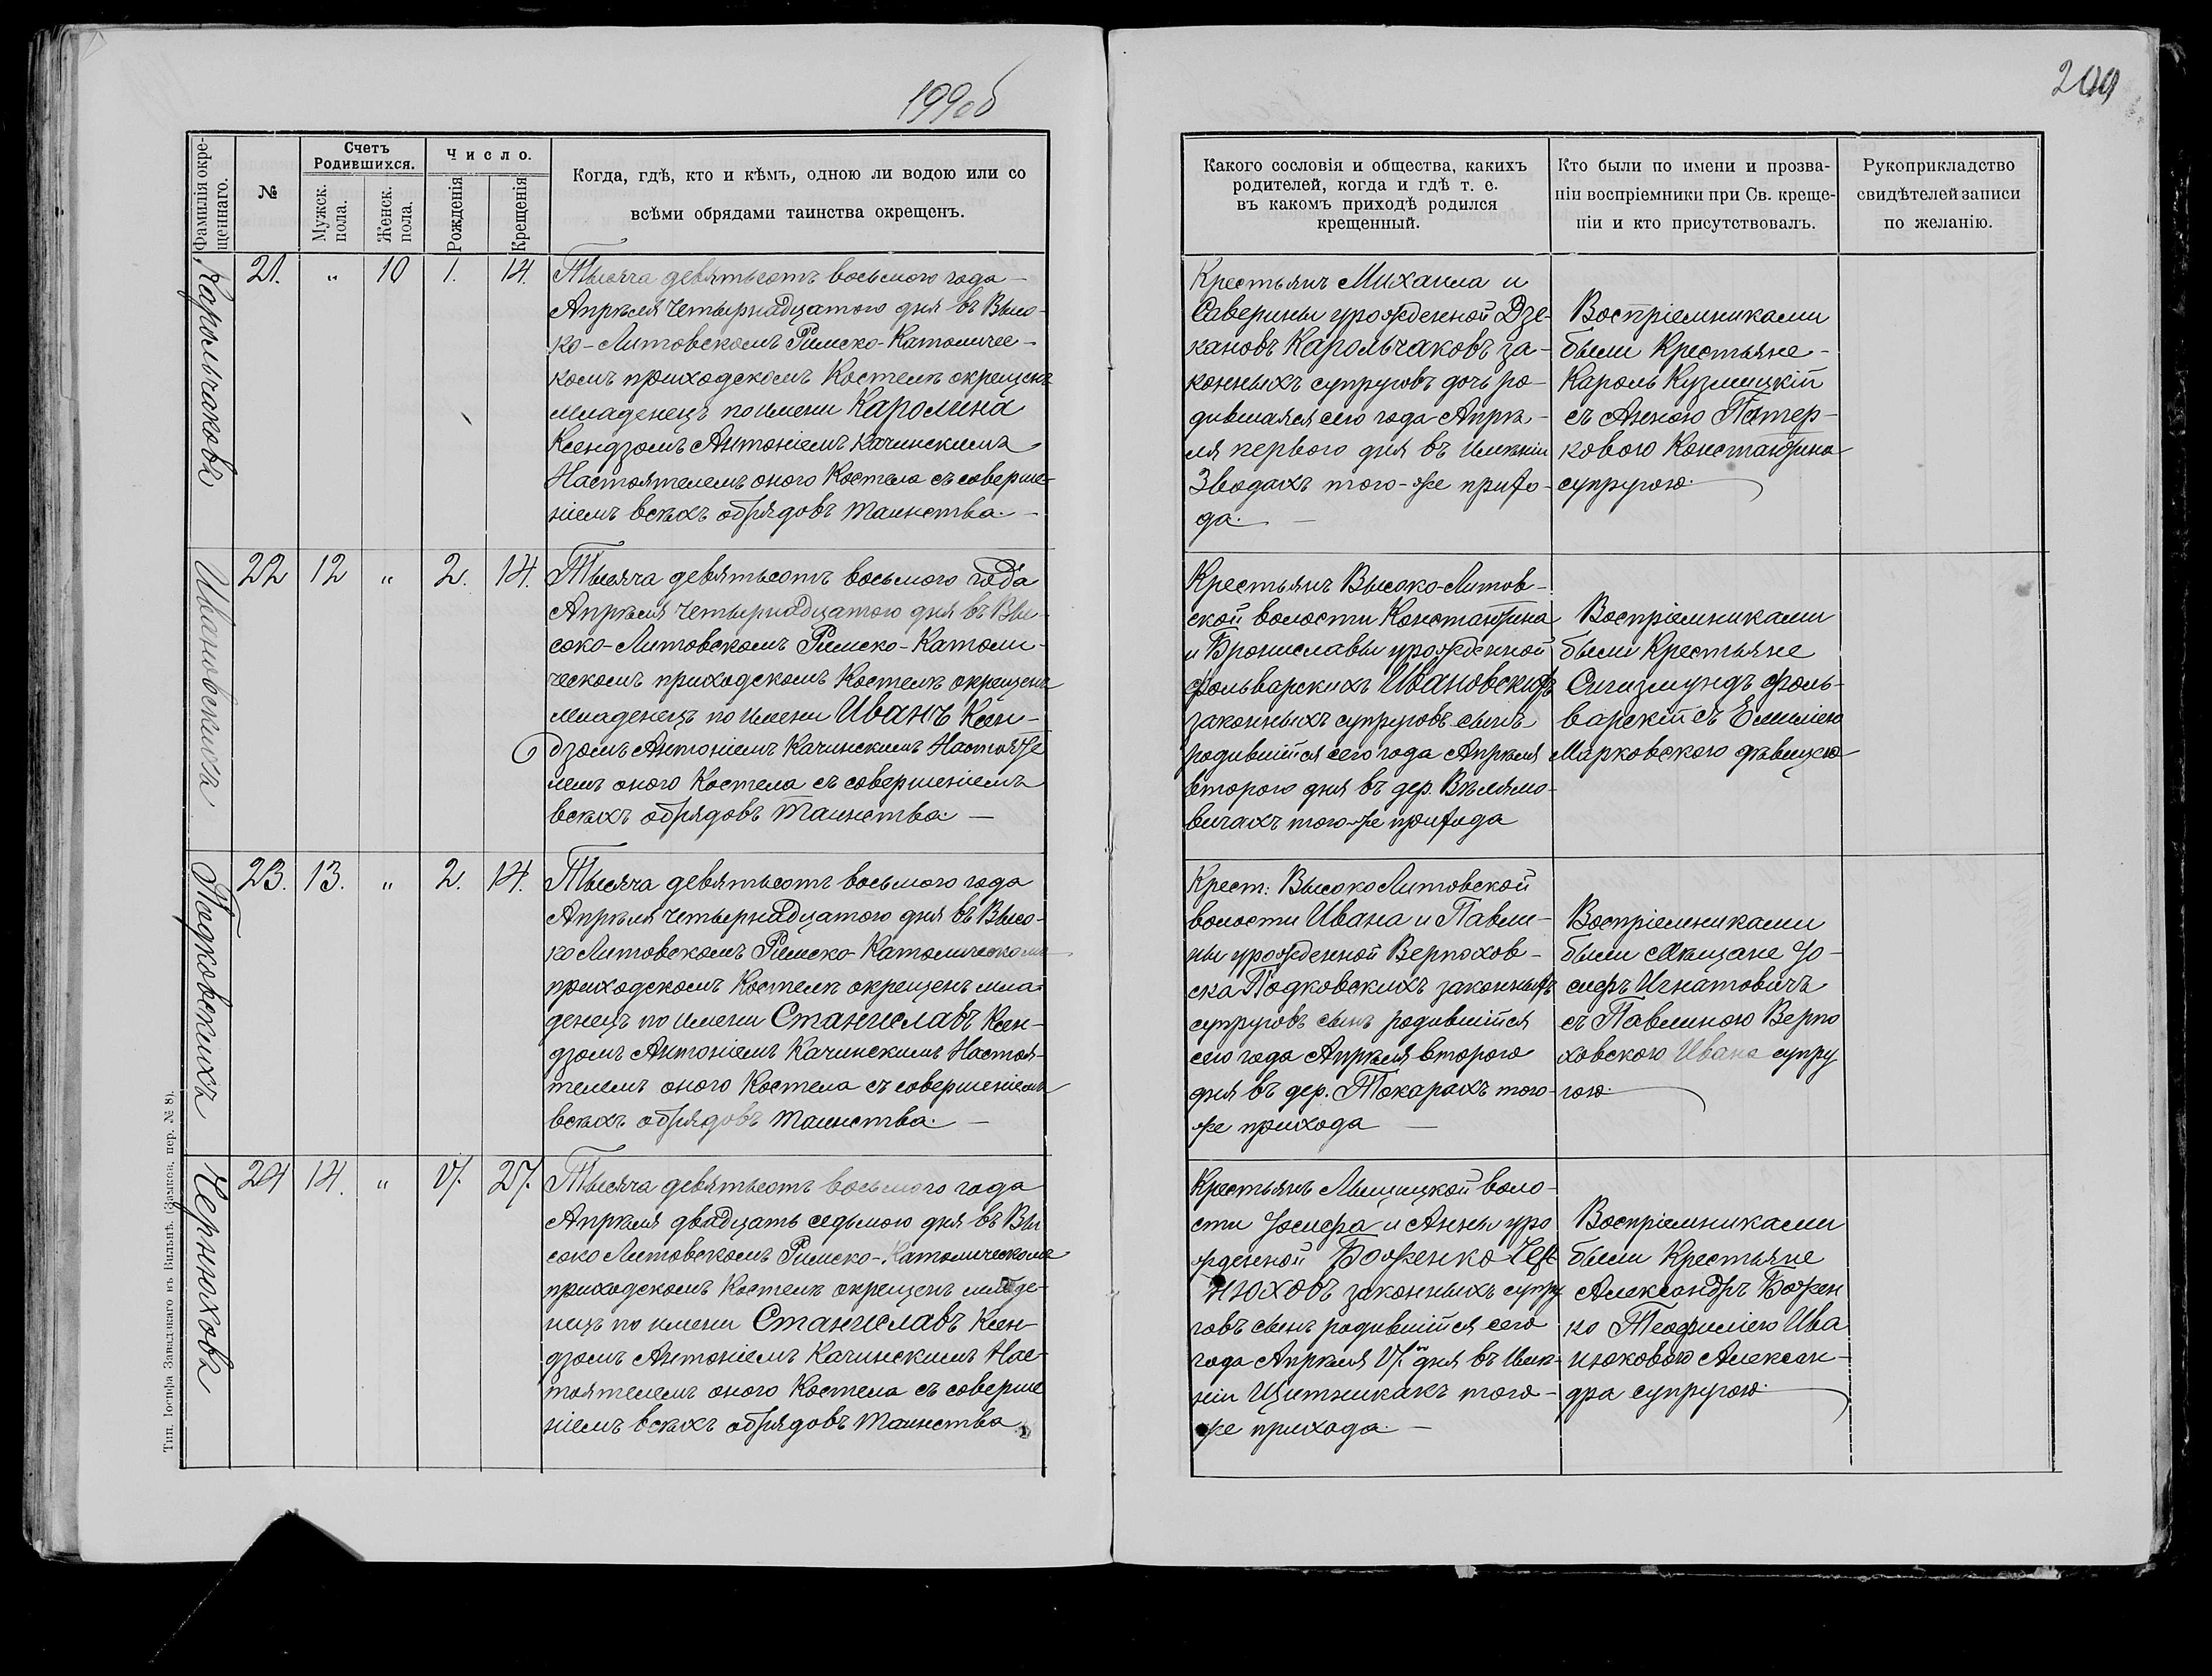 199об
200
Фамилія окре-
щеннаго.
№
Счетъ
Родившихся.
Мужск.
пола.
Женск.
пола.
Число.
Рожденія
Крещенія
Когда, гдѣ, кто и кѣмъ, одною ли водою или со
всѣми обрядами таинства окрещенъ.
Какого сословія и общества, какихъ
родителей, когда и гдѣ т. е.
въ какомъ приходѣ родился
крещенный.
Кто были по имени и прозва-
ніи воспріемники при Св. креще-
ніи и кто присутствовалъ.
Рукоприкладство
свидѣтелей записи
по желанію.
Карольчаковъ
21. „ 10 1. 14.
Тысяча девятьсотъ восьмого года
Апрѣля четырнадцатого дня въ Высо-
ко-Литовскомъ Римско-Католичес-
комъ приходскомъ Костелѣ окрещенъ
младенецъ по имени Каролина
Ксендзомъ Антоніемъ Качинскимъ
Настоятелемъ оного Костела съ соверше-
ніемъ всѣхъ обрядовъ таинства.
Крестьянъ Михаила и
Саверины урожденной Дзе-
кановъ Карольчаковъ за-
конныхъ супруговъ дочь ро-
дившаяся сего года Апрѣ-
ля первого дня въ имѣніи
Зводахъ того-же прихо-
да.
Воспріемниками
были Крестьяне
Кароль Кузмицкій
съ Анною Патер-
ковою Константина
супругою.
Ивановскихъ
22 12 „ 2. 14.
Тысяча девятьсотъ восьмого года
Апрѣля четырнадцатого дня въ Вы-
соко-Литовскомъ Римско-Католи-
ческомъ приходскомъ Костелѣ окрещенъ
младенецъ по имени Иванъ Ксен-
дзомъ Антоніемъ Качинскимъ Настояте
лемъ оного Костела съ совершеніемъ
всѣхъ обрядовъ таинства.
Крестьянъ Высоко-Литов-
ской волости Константина
и Брониславы урожденной
Фольварскихъ Ивановскихъ
законныхъ супруговъ сынъ
родившійся сего года Апрѣля
второго дня въ дер. Вѣлямо-
вичахъ того-же прихода
Воспріемниками
были Крестьяне
Сигизмундъ Фоль-
варскій съ Емиліею
Марковскою дѣвицею
Подковскихъ
23. 13. „ 2. 14.
Тысяча девятьсотъ восьмого года
Апрѣля четырнадцатого дня въ Высо-
ко Литовскомъ Римско-Католическомъ
приходскомъ Костелѣ окрещенъ мла-
денецъ по имени Станиславъ Ксен-
дзомъ Антоніемъ Качинскимъ Настоя-
телемъ оного Костела съ совершеніемъ
всѣхъ обрядовъ таинства.
Крест: Высоко Литовской
волости Ивана и Павли-
ны урожденной Верпохов-
ска Подковскихъ законныхъ
супруговъ сынъ родившійся
сего года Апрѣля второго
дня въ дер. Токарахъ того-
же прихода
Воспріемниками
были Мѣщане Іо-
сифъ Игнатовичъ
съ Павлиною Верпо
ховскою Ивана супру
гою.
Чернюховъ
24 14. „ 17. 27.
Тысяча девятьсотъ восьмого года
Апрѣля двадцать седьмого дня въ Вы
соко Литовскомъ Римско-Католическомъ
приходскомъ Костелѣ окрещенъ младе-
нецъ по имени Станиславъ Ксен-
дзомъ Антоніемъ Качинскимъ Нас-
тоятелемъ оного Костела съ соверше
ніемъ всѣхъ обрядовъ таинства
Крестьянъ Лыщицкой воло-
сти Іосифа и Анны уро
жденной Боженко Чер
нюховъ законныхъ супру
говъ сынъ родившійся сего
года Апрѣля дня въ имѣ-
ніи Щитникахъ того-
же прихода.
Воспріемниками
были Крестьяне
Александръ Божен
ко Теофиліею Ива
нюковою Алексан-
дра супругою.
Тип. Іосифа Завадзкаго въ Вильнѣ. (Замков. пер. № 8).